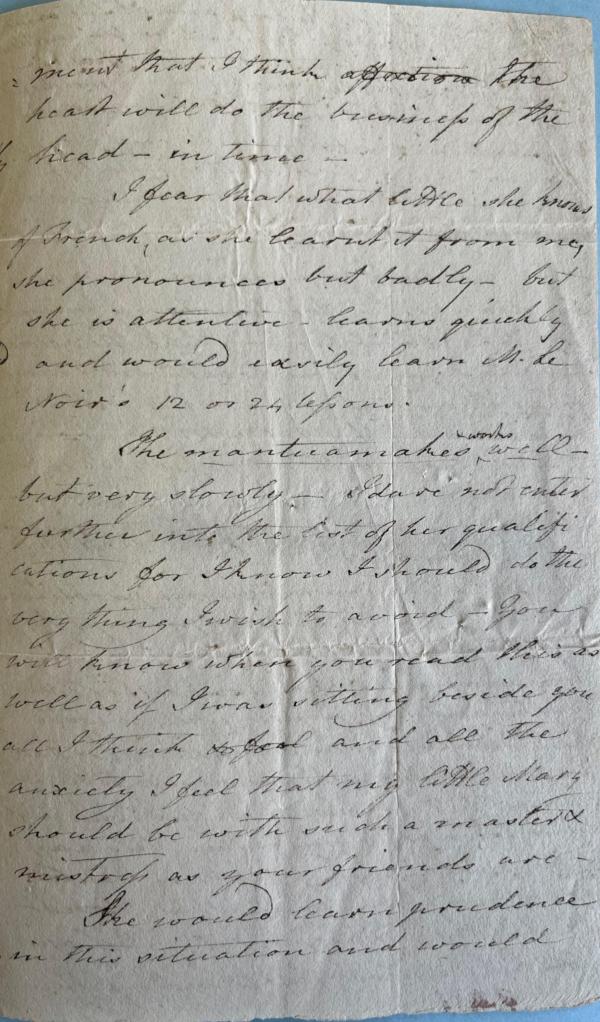 = ment that I think affection The
heart will do the businefs of the
head – in time –
I fear that what little she knows
of French, as she learnt it from me,
she pronounces but badly – but
she is attentive – learns quickly
and would easily learn M. Le
Noir's 12 or 24 lefsons.
She mantuamakes & works well –
but very slowly – I dare not enter
further into the list of her qualifi
cations for I know I should do the
very thing I wish to avoid – You
will know when you read this as
well as if I was sitting beside you
all I think & feel and all the
anxiety I feel that my little Mary
should be with such a master &
mistrefs as your friends are –
She would learn prudence
in this situation and would